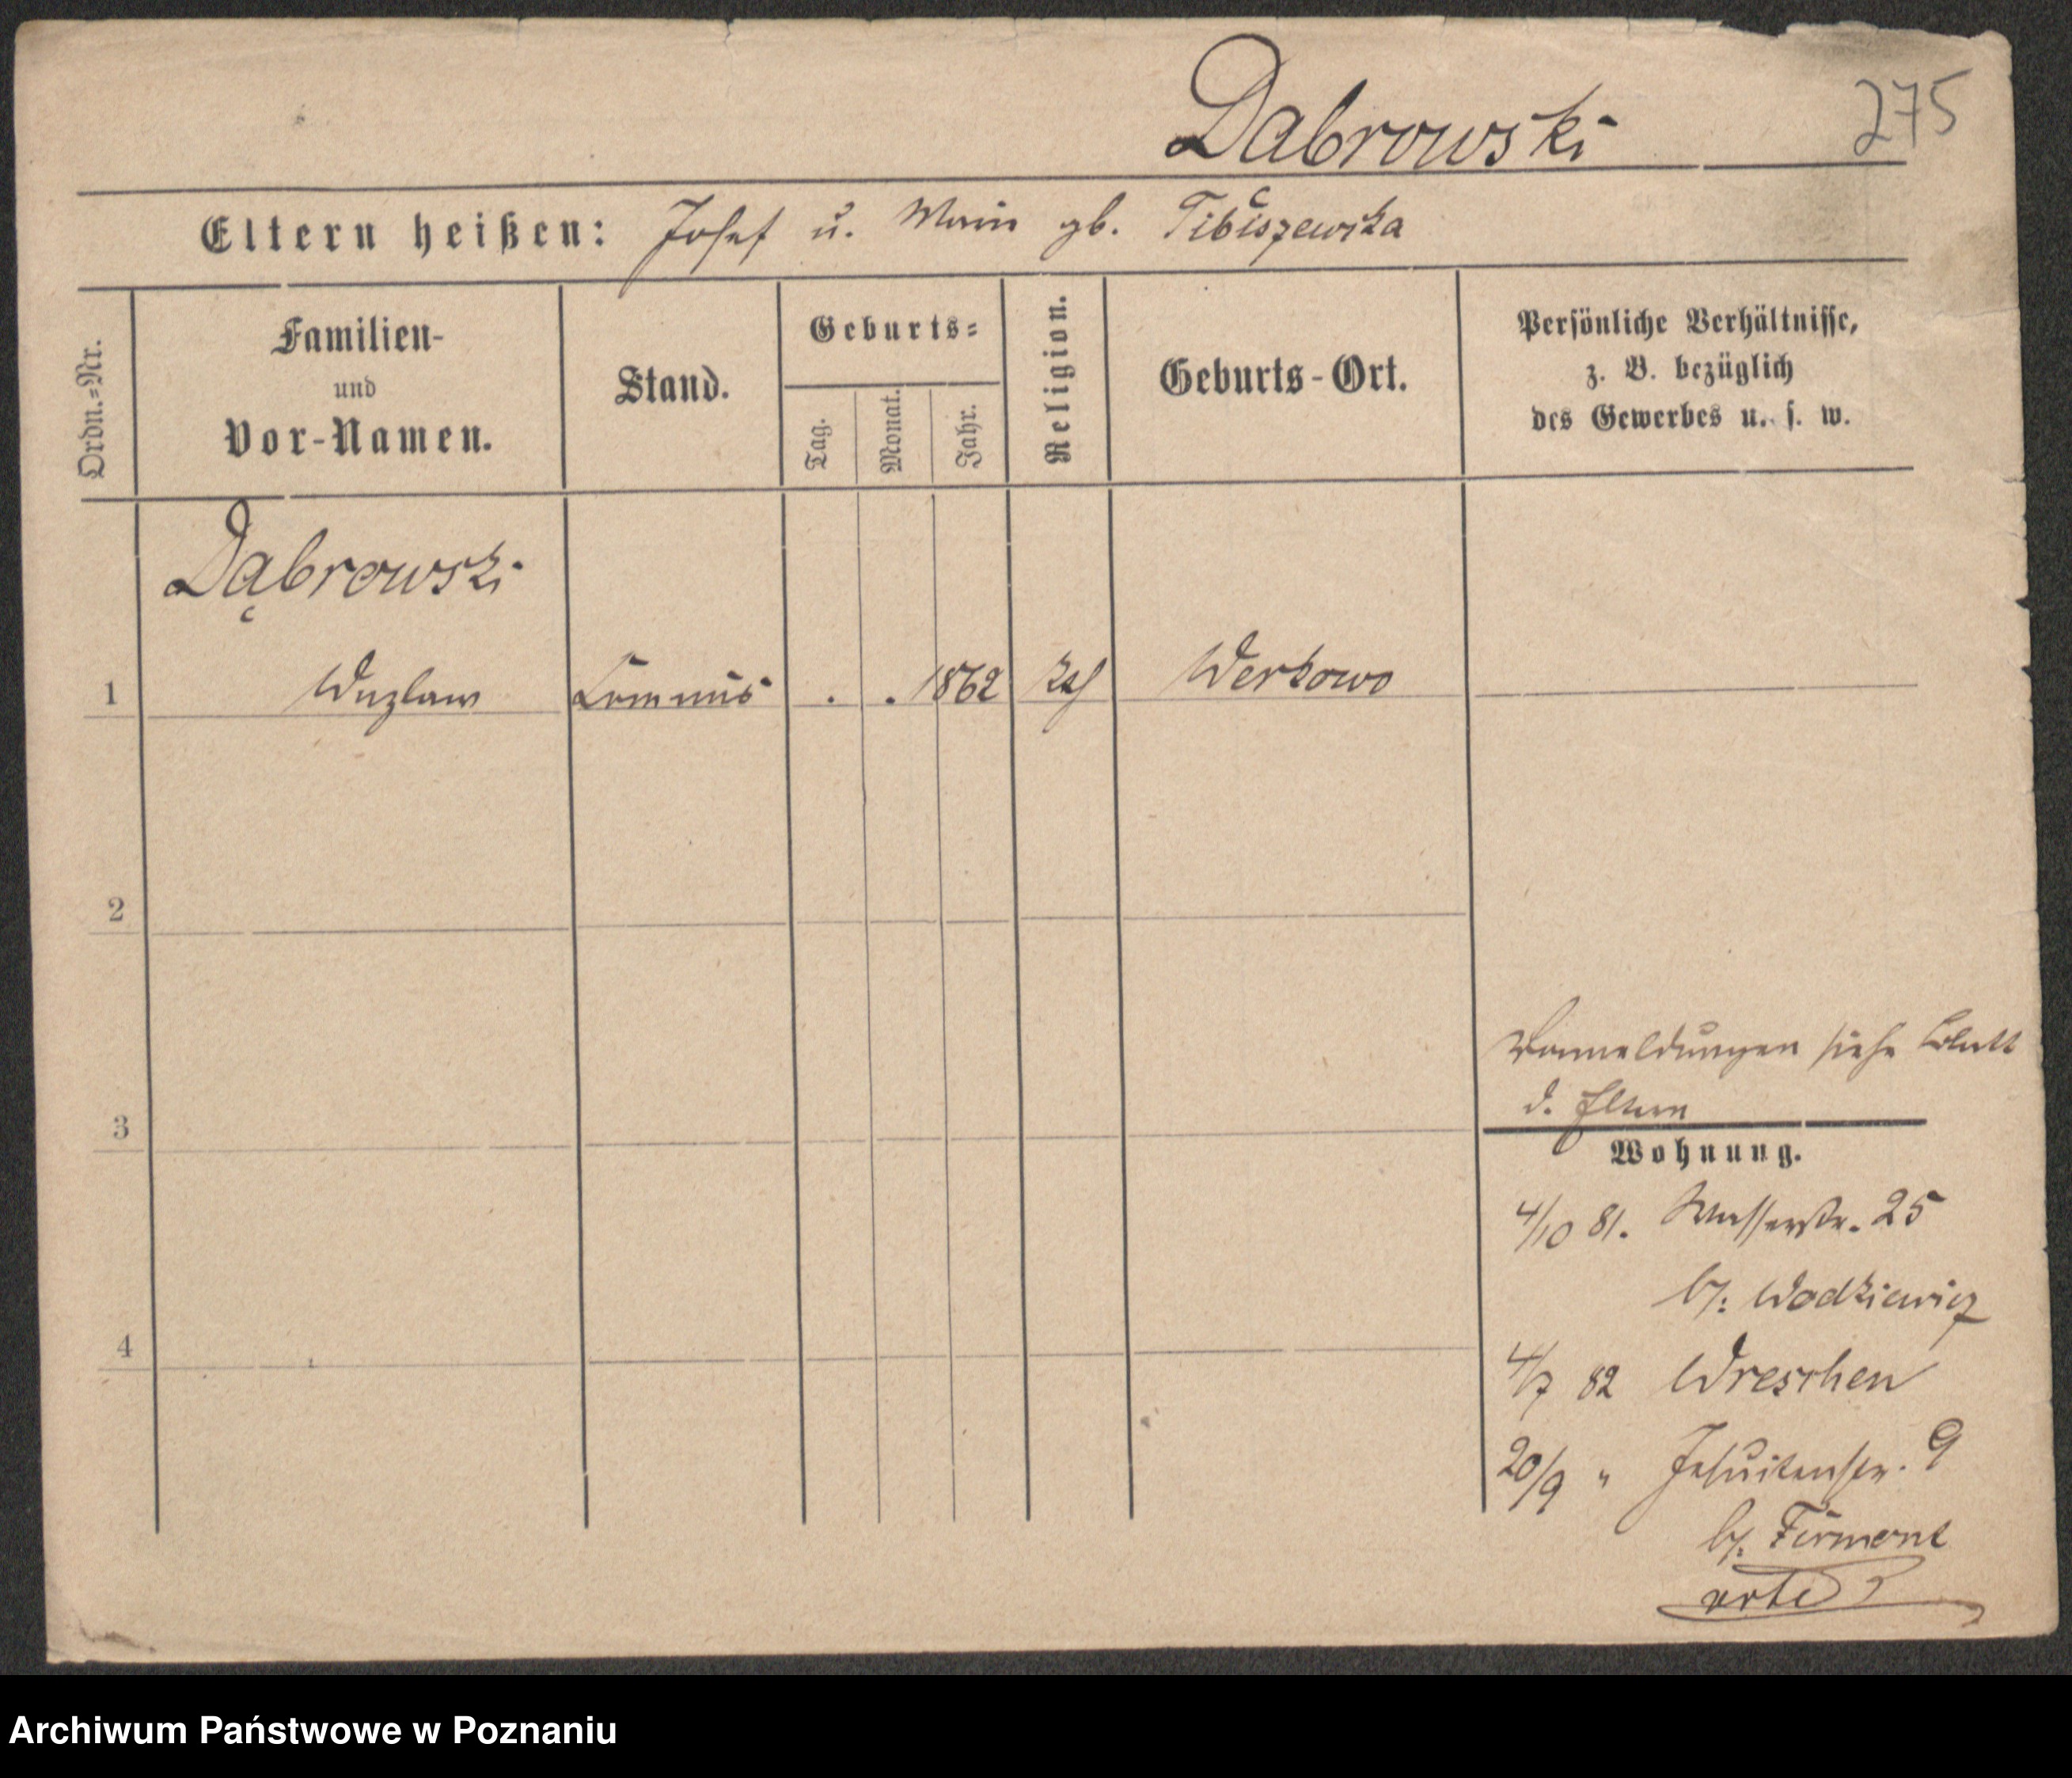 Dabrowski
275
Eltern heißen: Josef u. Marie gb. Tibiszewska
Ordn.=Nr.
Familien-
und
Vor-Namen.
Stand.
Geburts=
Tag.
Monat.
Jahr.
Religion.
Geburts-Ort.
Persönliche Verhältnisse,
z. B. bezüglich
des Gewerbes u. s. w.
Dąbrowski
1 Wazlaw Commis . . 1862 Kath Werkowo
2
3
4
Vormeldungen siehe Blatt
d. Eltern
Wohnung.
4/10 81. Wasserstr. 25
b/: Wodkiewicz
4/7 82 Wreschen
20/9 " Jesuitenstr. 9
b/. Firmont
Archiwum Państwowe w Poznaniu